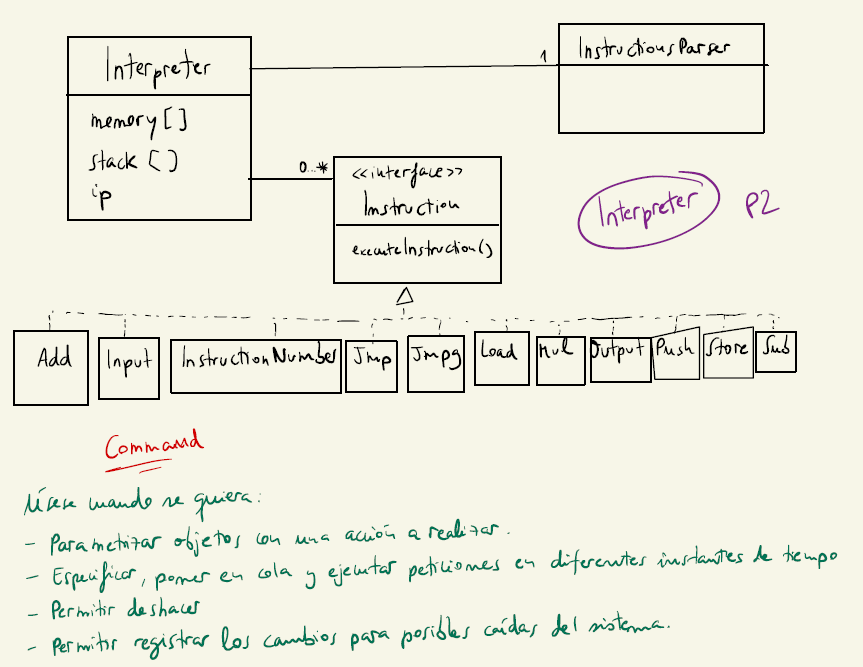 Interpreter
memory[]
stack[]
ip
1
InstructionsParser
0...*
<<interface>>
Instruction
executeInstruction()
Interpreter P2
Add Input InstructionNumber Jmp Jmpg Load Mul Output Push Store Sub
Command
Úsese cuando se quiera:
- Parametrizar objetos con una acción a realizar.
- Especificar, poner en cola y ejecutar peticiones en diferentes instantes de tiempo
- Permitir deshacer
- Permitir registrar los cambios para posibles caídas del sistema.